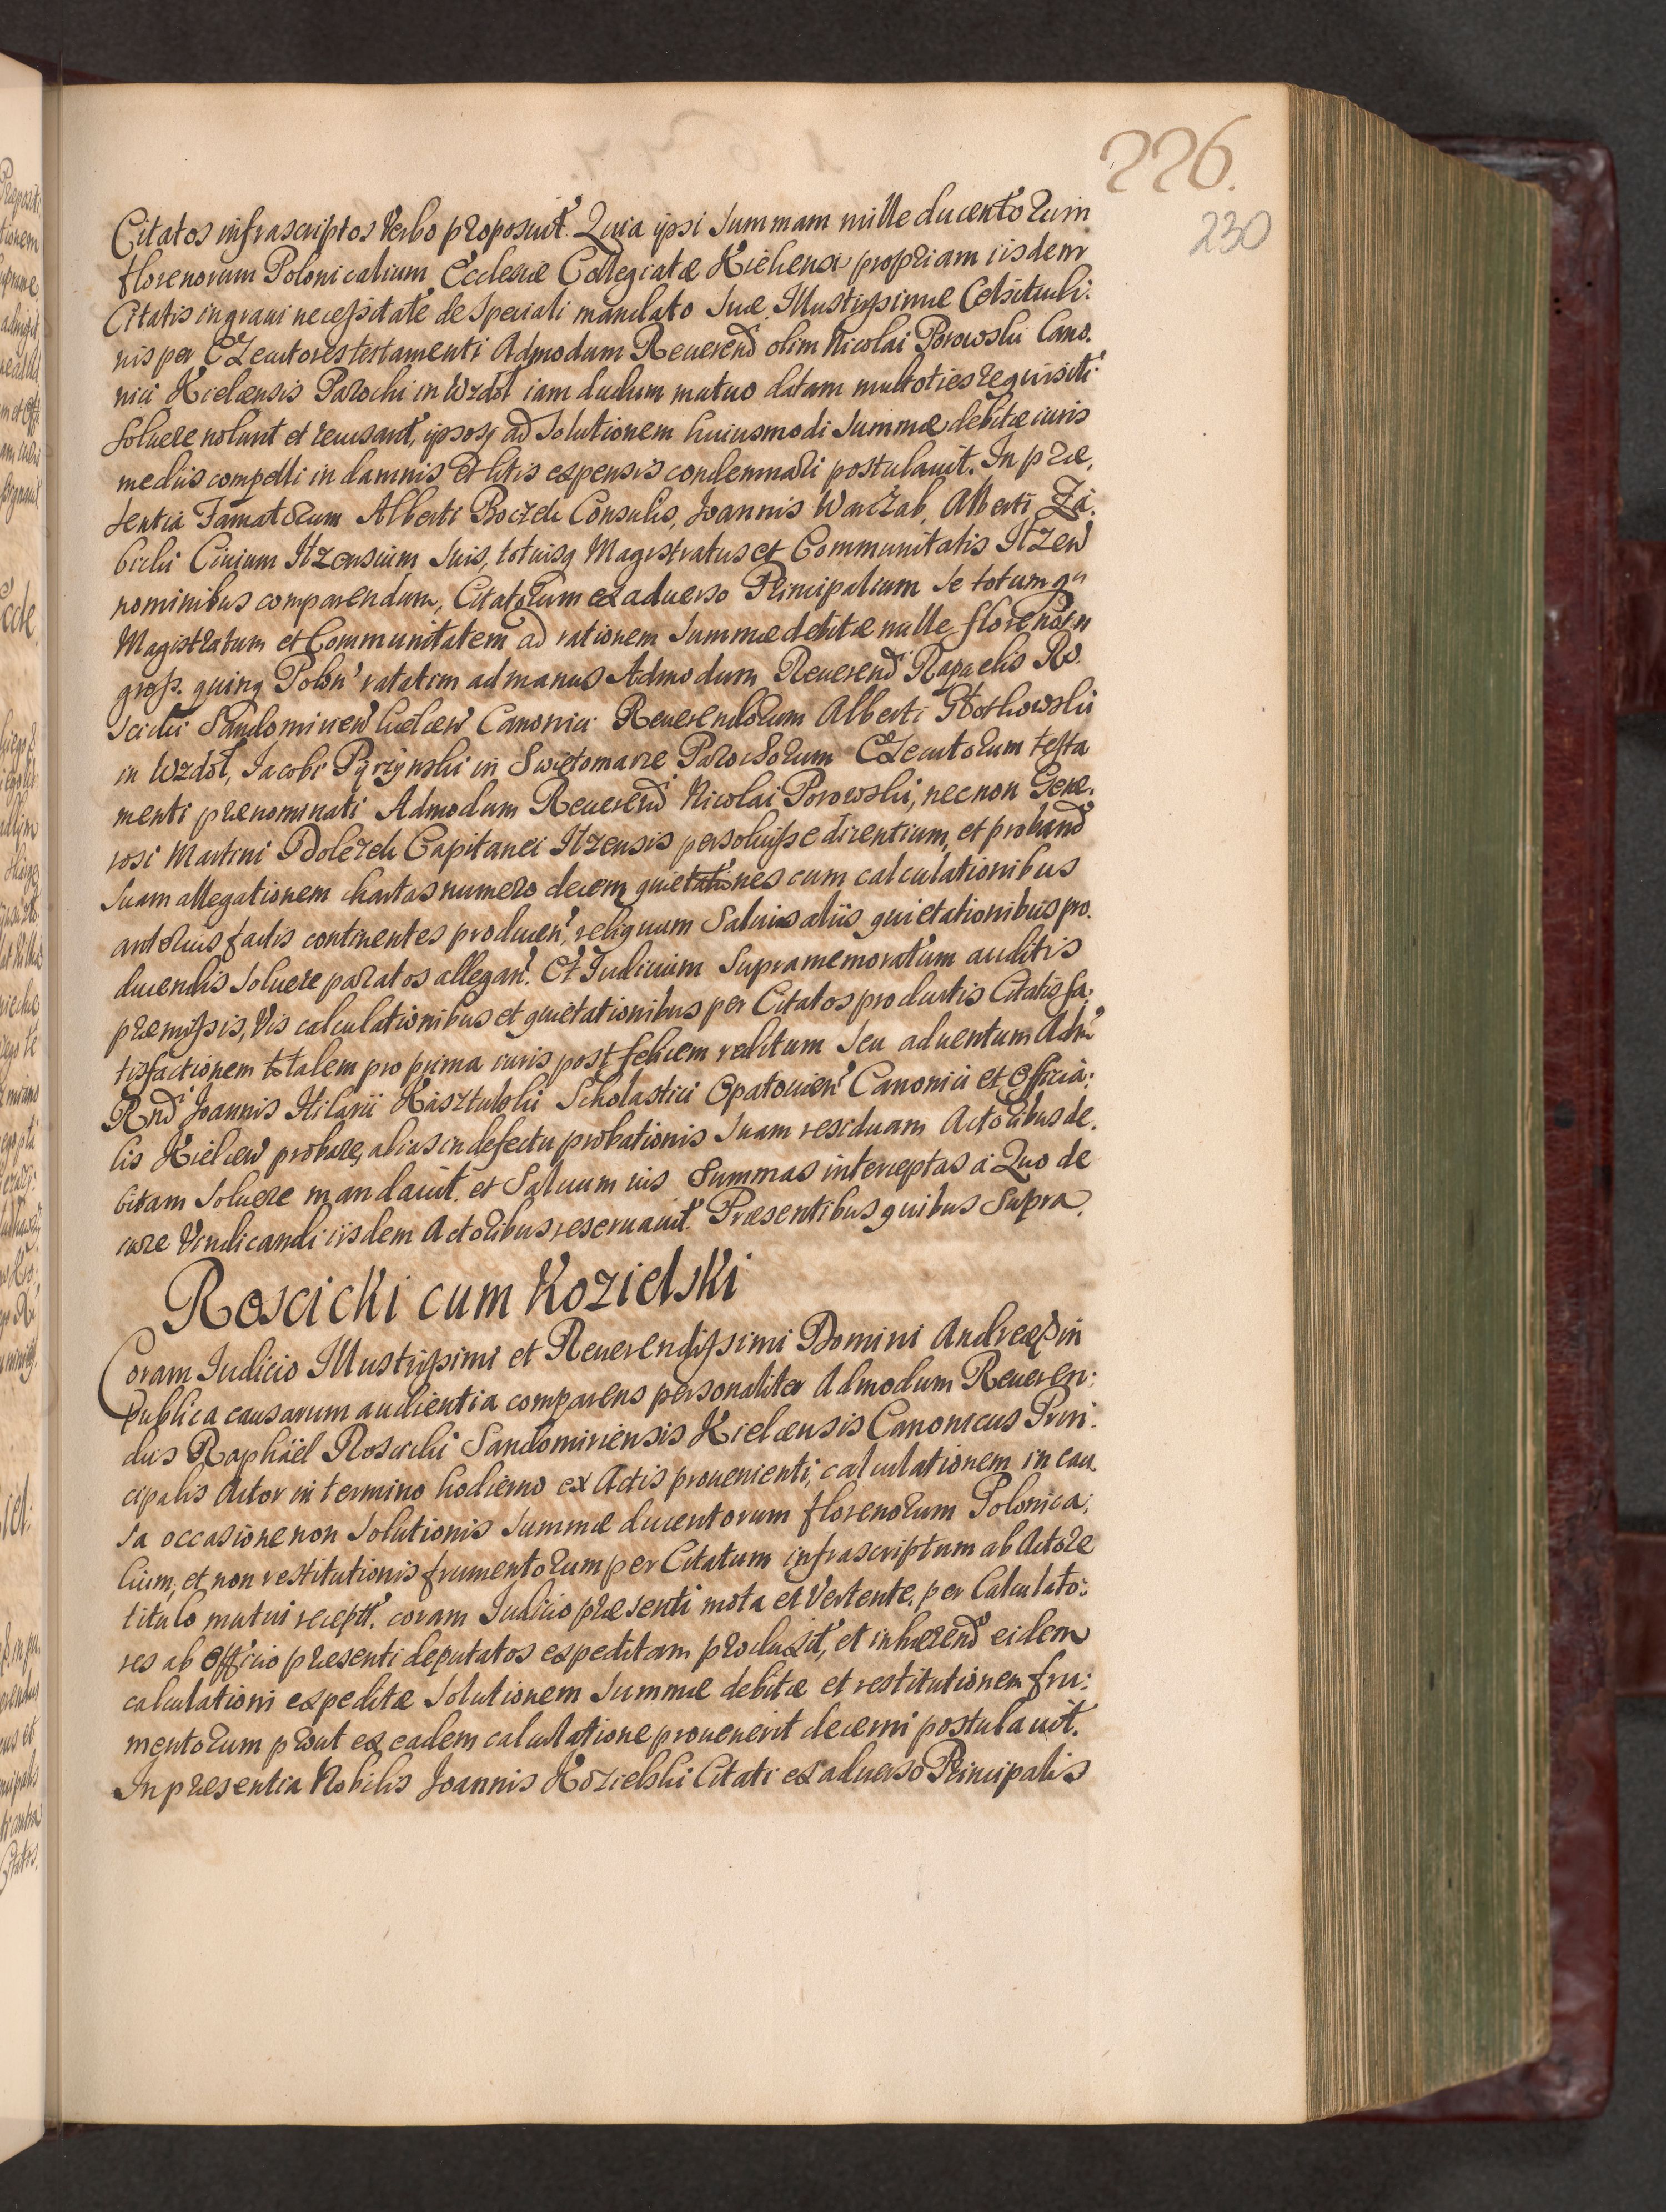 226.
230
Citatos infrascriptos Verbo proposuit. Quia ipsi Summam mille ducentorum
florenorum Polonicalium Ecclesiæ Collegiatæ Kielcensi propriam iisdem
Citatis in graui necessitate de speciali mandato Suæ Illustrissimæ Celsitudi:
nis per Executores testamenti Admodum Reuerend olim Nicolai Porowski Cano.
nici Kielcensis Parochi in Wzdol iam dudum mutuo datam multoties requisiti
soluere nolunt et recusant, ipsosq ad solutionem huiusmodi Summæ debitæ iuris
medijs compelli in damnis et litis expensis condemnari postulauit. In præ,
sentia Famatorum Alberti Boczek Consulis, Joannis Warzab, Alberti Zi:
bicki Ciuium Ilzensium suis, totiusq Magistratus et Communitatis Ilzen
nominibus comparendum, Citatorum ex aduerso Principalium se totumq
Magistratum et Communitatem ad rationem Summæ debitæ mille florenorum
gross. quinq Polon' ratatim ad manus Admodum Reuerend Rapaelis Ro.
scicki Sandomirien kielcen Canonici Reuerendorum Alberti Gloskowski
in Wzdol, Jacobi Pyrzynski in Swietomarze Parochorum Executorum testa
menti prænominati Admodum Reuerend Nicolai Porowski, necnon Gene.
rosi Martini Dolezek Capitanei Ilzensis persoluisse dicentium, et proband
suam allegationem chartas numero decem quietationes cum calculationibus
antorius factis continentes producen', reliquum saluis aliis quietationibus pro.
ducendis soluere paratos allegan'. Et Iudicium supramemoratum auditis
præmissis, Vis calculationibus et quietationibus per Citatos productis Citatis sa,
tisfactionem totalem pro prima iuris post felicem reditum seu aduentum Adm
Rnd Joannis Hilarii Kasztulski Scholastici Opatouien' Canonici et Officia:
lis Kielcen probare, alias in defectu probationis suam residuam Actoribus de.
bitam soluere mandauit. et Saluum ius Summas interceptas a Quo de
iure Vendicandi iisdem Actoribus reseruauit. Præsentibus quibus Supra.
Roscicki cum Kozielski
Coram Iudicio Illustrissimi et Reuerendissimi Domini Andreæ in
Publica causarum audientia comparens personaliter Admodum Reueren:
dus Raphäel Roscicki Sandomiriensis Kielcensis Canonicus Prin:
cipalis Actor in termino hodierno ex Actis prouenienti, calculationem in cau
sa occasione non solutionis Summæ ducentorum florenorum Polonica:
lium, et non restitutionis frumentorum per Citatum infrascriptum ab Actore
titulo mutui recept. coram Iudicio præsenti mota et Vertente. per Calculato:
res ab Officio præsenti deputatos expeditam produxit, et inhærend eidem
calculationi expeditæ solutionem Summæ debitæ et restitutionem fru:
mentorum prout ex eadem calculatione prouenerit decerni postulauit.
In præsentia Nobilis Joannis Kozielski Citati ex aduerso Principalis